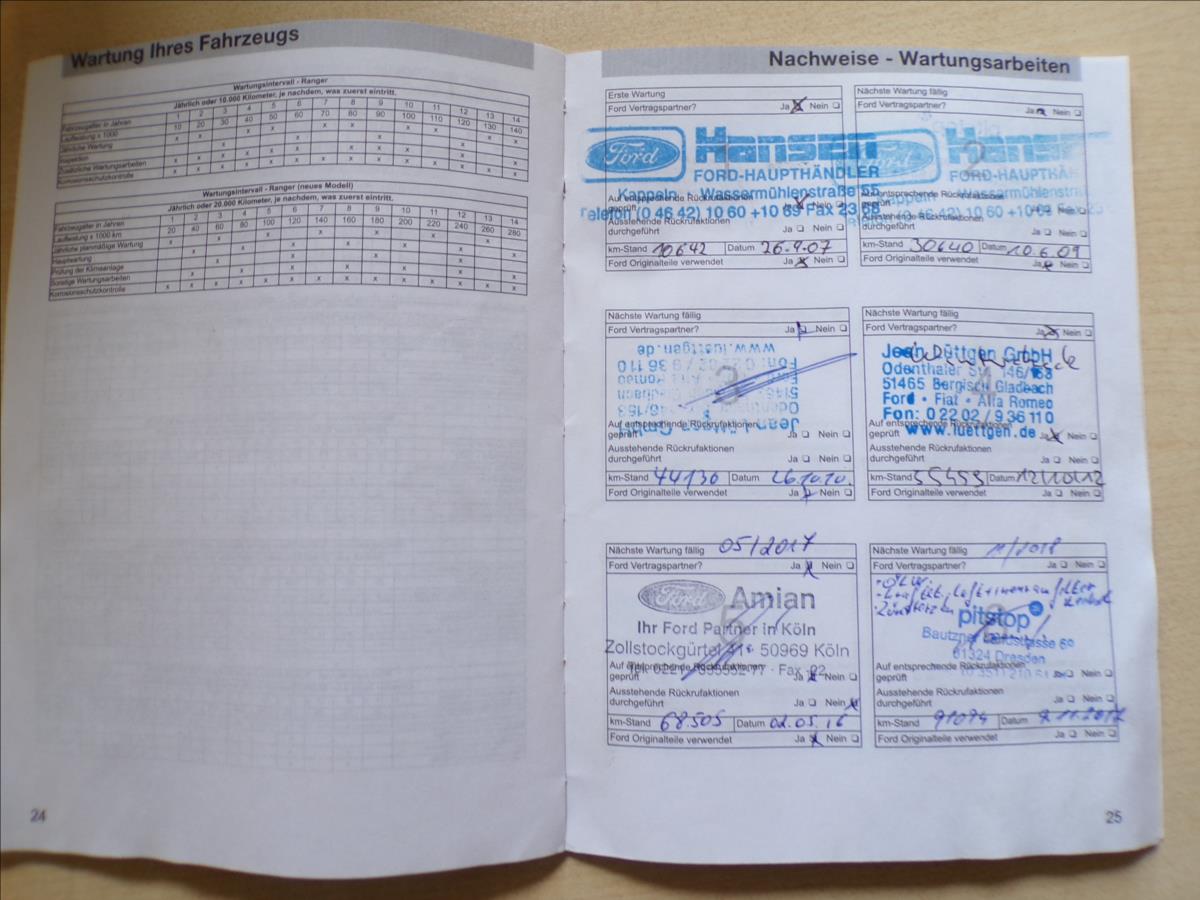 Wartung Ihres Fahrzeugs
Wartungsintervall - Ranger
Jährlich oder 10.000 Kilometer, je nachdem, was zuerst eintritt.
Fahrzeugalter in Jahren 1 2 3 4 5 6 7 8 9 10 11 12 13 14
Laufleistung x 1000 10 20 30 40 50 60 70 80 90 100 110 120 130 140
Jährliche Wartung
Inspektion
Zusätzliche Wartungsarbeiten
Korrosionsschutzkontrolle
Wartungsintervall - Ranger (neues Modell)
Jährlich oder 20.000 Kilometer, je nachdem, was zuerst eintritt.
Fahrzeugalter in Jahren 1 2 3 4 5 6 7 8 9 10 11 12 13 14
Laufleistung x 1000 km 20 40 60 80 100 120 140 160 180 200 220 240 260 280
Jährliche planmäßige Wartung
Hauptwartung
Prüfung der Klimaanlage
Sonstige Wartungsarbeiten
Korrosionsschutzkontrolle
24
Nachweise - Wartungsarbeiten
Erste Wartung
Ford Vertragspartner? Ja Nein
Ford Hansen
FORD-HAUPTHÄNDLER
Kappeln Wassermühlenstraße 55
Telefon (0 46 42) 10 60 + 10 69 Fax 23 68
Auf entsprechende Rückrufaktionen
geprüft Ja Nein
Ausstehende Rückrufaktionen
durchgeführt Ja Nein
km-Stand 10642 Datum 26.9.07
Ford Originalteile verwendet Ja Nein
Nächste Wartung fällig
Ford Vertragspartner? Ja Nein
Ford Hans
FORD-HAUPTHÄ
Auf entsprechende Rückrufaktionen
geprüft
Ausstehende Rückrufaktionen
durchgeführt Ja Nein
km-Stand 30640 Datum 10.6.09
Ford Originalteile verwendet Ja Nein
Nächste Wartung fällig
Ford Vertragspartner? Ja Nein
www.luettgen.de
Fon: 0 22 02 / 9 36 110
Auf entsprechende Rückrufaktionen
geprüft Ja Nein
Ausstehende Rückrufaktionen
durchgeführt Ja Nein
km-Stand 44130 Datum 26.10.10.
Ford Originalteile verwendet Ja Nein
Nächste Wartung fällig
Ford Vertragspartner? Ja Nein
Jean Lüttgen GmbH
Odenthaler Str. 146/153
51465 Bergisch Gladbach
Ford • Fiat • Alfa Romeo
Fon: 0 22 02 / 9 36 110
www.luettgen.de
Auf entsprechende Rückrufaktionen
geprüft Ja Nein
Ausstehende Rückrufaktionen
durchgeführt Ja Nein
km-Stand 55453 Datum 12/10/12
Ford Originalteile verwendet Ja Nein
Nächste Wartung fällig 05/2017
Ford Vertragspartner? Ja Nein
Ford Amian
5
Ihr Ford Partner in Köln
Zollstockgürtel 41 · 50969 Köln
Auf entsprechende Rückrufaktionen
geprüft Ja Nein
Ausstehende Rückrufaktionen
durchgeführt Ja Nein
km-Stand 68.505 Datum 02.05.16
Ford Originalteile verwendet Ja Nein
Nächste Wartung fällig 11/2018
Ford Vertragspartner? Ja Nein
pitstop
Bautzner Landstrasse 69
01324 Dresden
Auf entsprechende Rückrufaktionen
geprüft Ja Nein
Ausstehende Rückrufaktionen
durchgeführt Ja Nein
km-Stand 91094 Datum 8.11.2017
Ford Originalteile verwendet Ja Nein
25